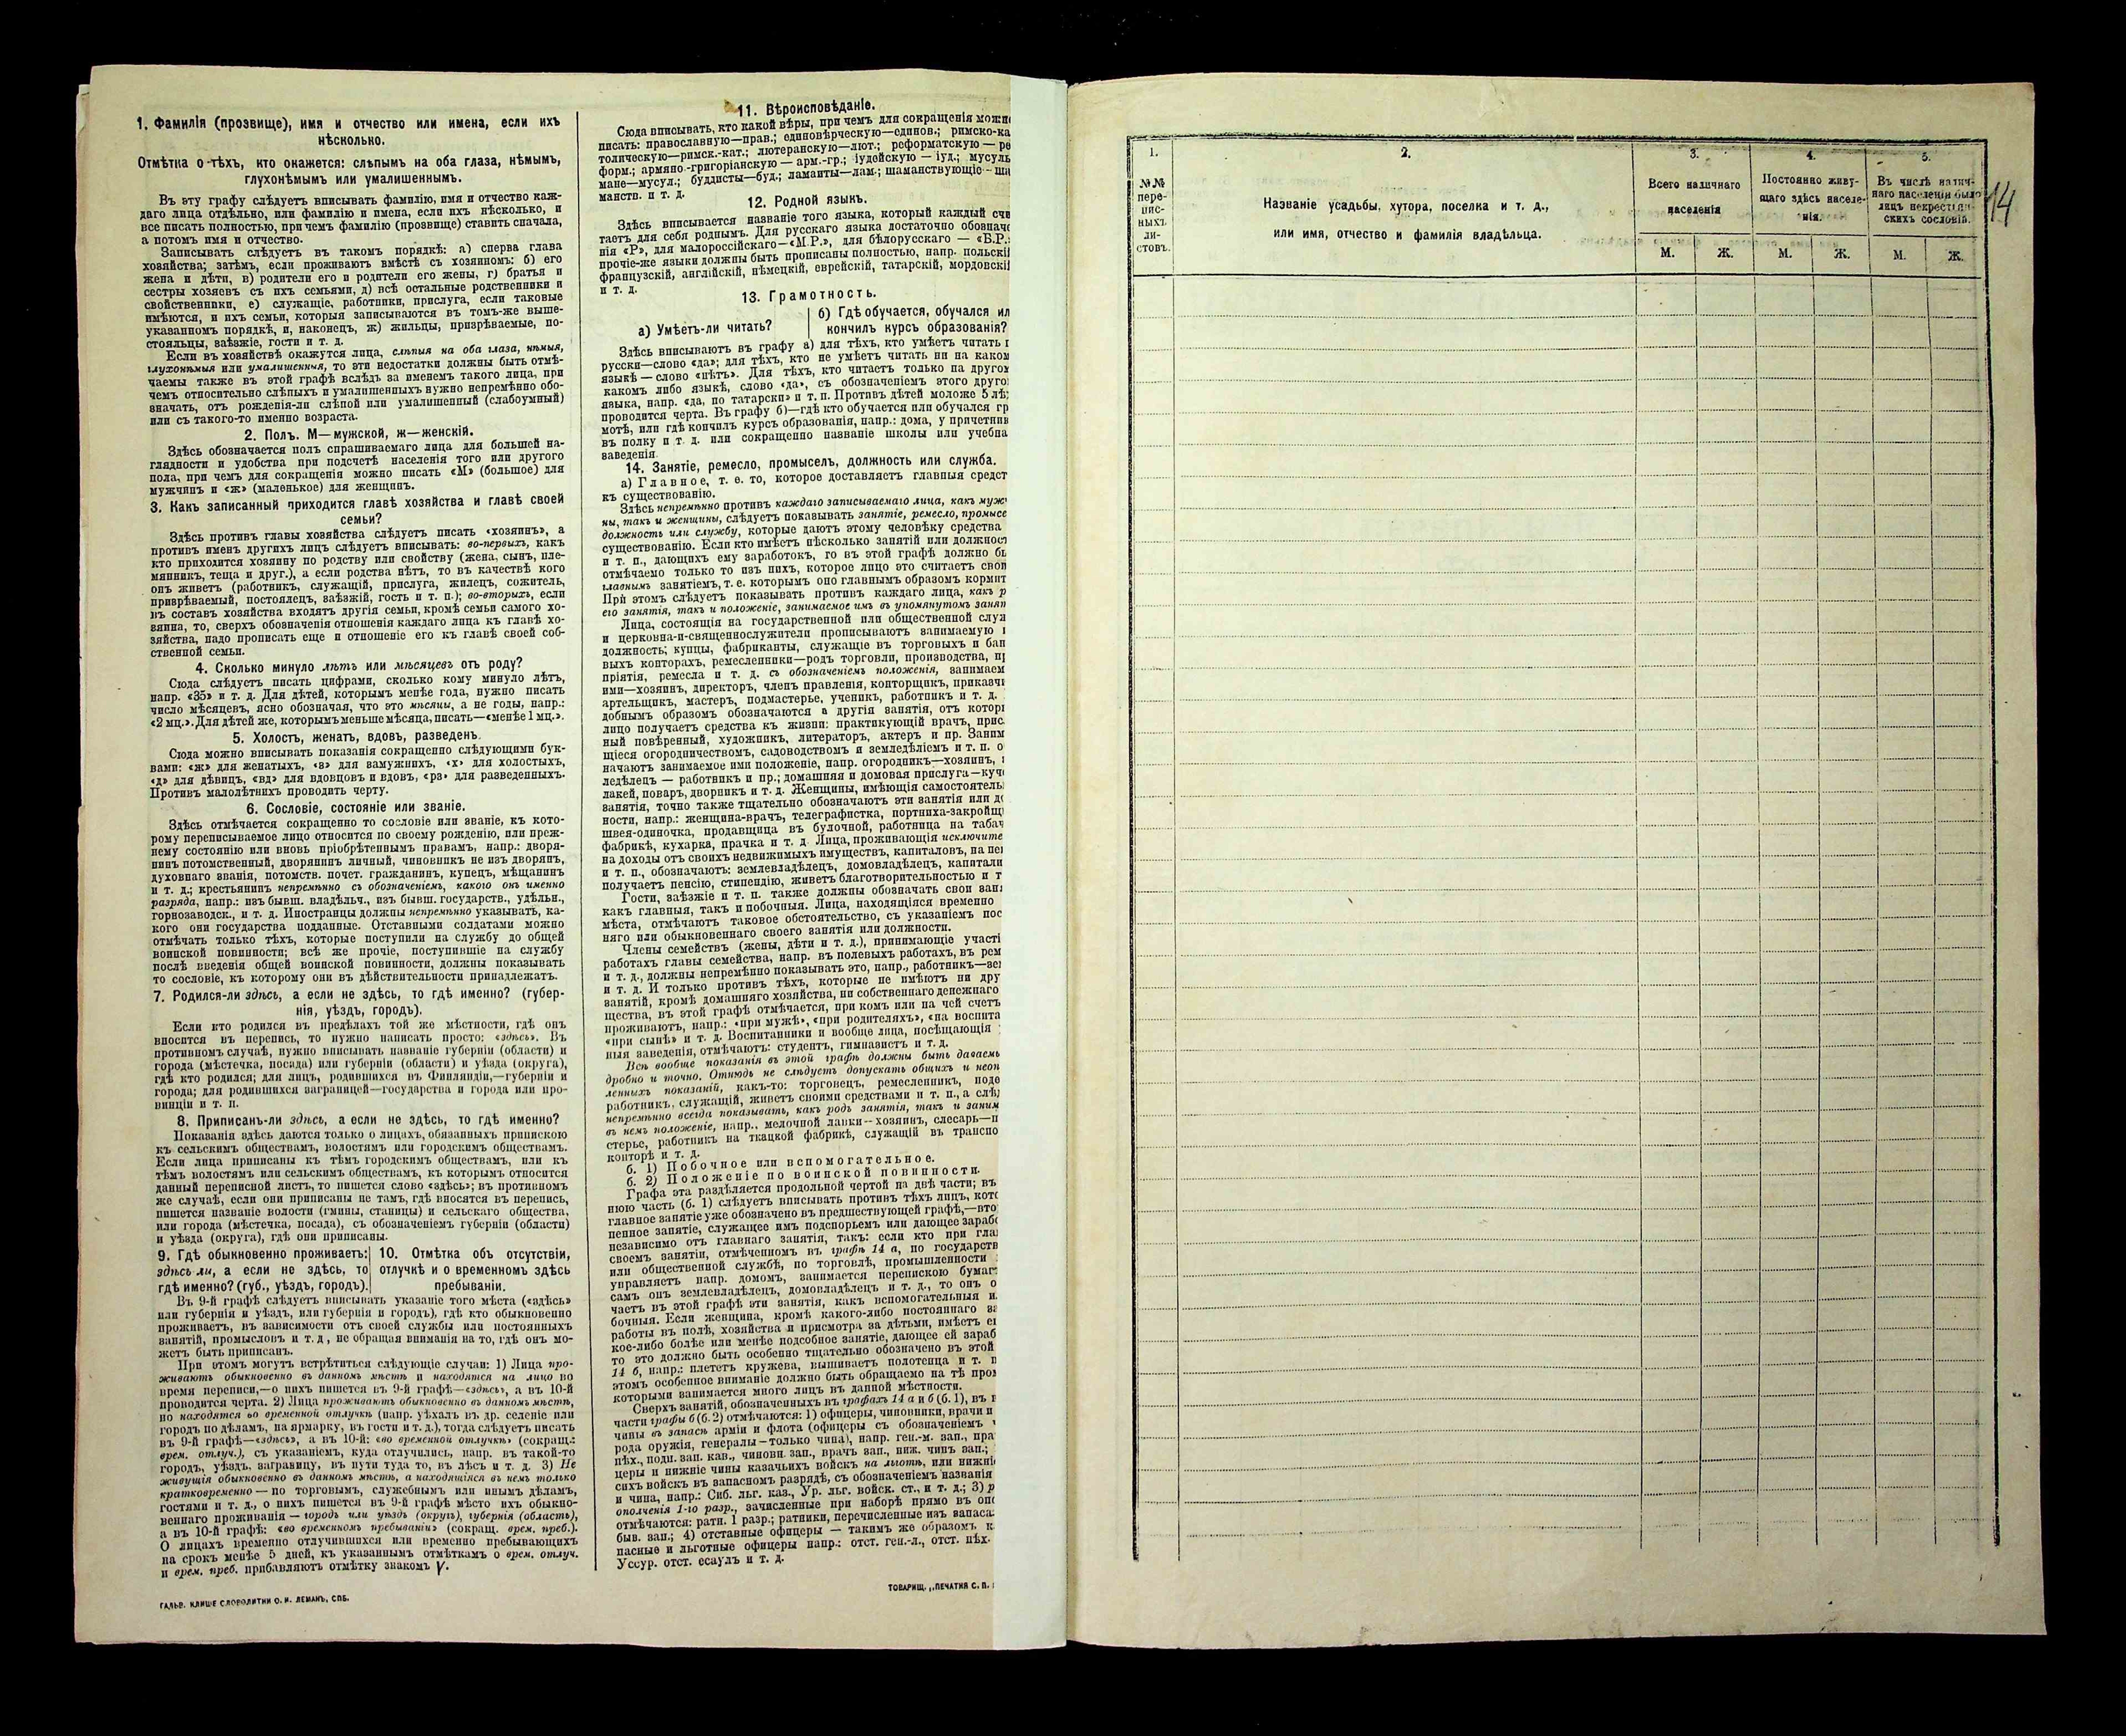 1. Фамилія (прозвище), имя и отчество или имена, если ихъ
нѣсколько.
Отмѣтка о тѣхъ, кто окажется: слѣпымъ на оба глаза, нѣмымъ,
глухонѣмымъ или умалишеннымъ.
Въ эту графу слѣдуетъ вписывать фамилію, имя и отчество каж-
даго лица отдѣльно, или фамилію и имена, если ихъ нѣсколько, и
все писать полностью, при чемъ фамилію (прозвище) ставить сначала,
а потомъ имя и отчество.
Записывать слѣдуетъ въ такомъ порядкѣ: а) сперва глава
хозяйства; затѣмъ, если проживаютъ вмѣстѣ съ хозяиномъ: б) его
жена и дѣти, в) родители его и родители его жены, г) братья и
сестры хозяевъ съ ихъ семьями, д) всѣ остальные родственники и
свойственники, е) служащіе, работники, прислуга, если таковые
имѣются, и ихъ семьи, которыя записываются въ томъ-же выше-
указанномъ порядкѣ, и, наконецъ, ж) жильцы, призрѣваемые, по-
стояльцы, заѣзжіе, гости и т. д.
Если въ хозяйствѣ окажутся лица, слѣпыя на оба глаза, нѣмыя,
глухонѣмыя или умалишенныя, то эти недостатки должны быть отмѣ-
чаемы также въ этой графѣ вслѣдъ за именемъ такого лица, при
чемъ относительно слѣпыхъ и умалишенныхъ нужно непремѣнно обо-
значать, отъ рожденія-ли слѣпой или умалишенный (слабоумный)
или съ такого-то именно возраста.
2. Полъ. М—мужской, ж—женскій.
Здѣсь обозначается полъ спрашиваемаго лица для большей на-
глядности и удобства при подсчетѣ населенія того или другого
пола, при чемъ для сокращенія можно писать «М» (большое) для
мужчинъ и «ж» (маленькое) для женщинъ.
3. Какъ записанный приходится главѣ хозяйства и главѣ своей
семьи?
Здѣсь противъ главы хозяйства слѣдуетъ писать «хозяинъ», а
противъ именъ другихъ лицъ слѣдуетъ вписывать: во-первыхъ, какъ
кто приходится хозяину по родству или свойству (жена, сынъ, пле-
мянникъ, теща и друг.), а если родства нѣтъ, то въ качествѣ кого
онъ живетъ (работникъ, служащій, прислуга, жилецъ, сожитель,
призрѣваемый, постоялецъ, заѣзжій, гость и т. п.); во-вторыхъ, если
въ составъ хозяйства входятъ другія семьи, кромѣ семьи самого хо-
зяина, то, сверхъ обозначенія отношенія каждаго лица къ главѣ хо-
зяйства, надо прописать еще и отношеніе его къ главѣ своей соб-
ственной семьи.
4. Сколько минуло лѣтъ или мѣсяцевъ отъ роду?
Сюда слѣдуетъ писать цифрами, сколько кому минуло лѣтъ,
напр. «35» и т. д. Для дѣтей, которымъ менѣе года, нужно писать
число мѣсяцевъ, ясно обозначая, что это мѣсяцы, а не годы, напр.:
«2 мц.». Для дѣтей же, которымъ меньше мѣсяца, писать—«менѣе 1 мц.».
5. Холостъ, женатъ, вдовъ, разведенъ.
Сюда можно вписывать показанія сокращенно слѣдующими бук-
вами: «ж» для женатыхъ, «з» для замужнихъ, «х» для холостыхъ,
«д» для дѣвицъ, «вд» для вдовцовъ и вдовъ, «рз» для разведенныхъ.
Противъ малолѣтнихъ проводить черту.
6. Сословіе, состояніе или званіе.
Здѣсь отмѣчается сокращенно то сословіе или званіе, къ кото-
рому переписываемое лицо относится по своему рожденію, или преж-
нему состоянію или вновь пріобрѣтеннымъ правамъ, напр.: дворя-
нинъ потомственный, дворянинъ личный, чиновникъ не изъ дворянъ,
духовнаго званія, потомств. почет. гражданинъ, купецъ, мѣщанинъ
и т. д.; крестьянинъ непремѣнно съ обозначеніемъ, какого онъ именно
разряда, напр.: изъ бывш. владѣльч., изъ бывш. государств., удѣльн.,
горнозаводск., и т. д. Иностранцы должны непремѣнно указывать, ка-
кого они государства подданные. Отставными солдатами можно
отмѣчать только тѣхъ, которые поступили на службу до общей
воинской повинности; всѣ же прочіе, поступившіе на службу
послѣ введенія общей воинской повинности, должны показывать
то сословіе, къ которому они въ дѣйствительности принадлежатъ.
7. Родился-ли здѣсь, а если не здѣсь, то гдѣ именно? (губер-
нія, уѣздъ, городъ).
Если кто родился въ предѣлахъ той же мѣстности, гдѣ онъ
вносится въ перепись, то нужно написать просто: «здѣсь». Въ
противномъ случаѣ, нужно вписывать названіе губерніи (области) и
города (мѣстечка, посада) или губерніи (области) и уѣзда (округа),
гдѣ кто родился; для лицъ, родившихся въ Финляндіи,—губерніи и
города; для родившихся заграницей—государства и города или про-
винціи и т. п.
8. Приписанъ-ли здѣсь, а если не здѣсь, то гдѣ именно?
Показанія здѣсь даются только о лицахъ, обязанныхъ припискою
къ сельскимъ обществамъ, волостямъ или городскимъ обществамъ.
Если лица приписаны къ тѣмъ городскимъ обществамъ, или къ
тѣмъ волостямъ или сельскимъ обществамъ, къ которымъ относится
данный переписной листъ, то пишется слово «здѣсь»; въ противномъ
же случаѣ, если они приписаны не тамъ, гдѣ вносятся въ перепись,
пишется названіе волости (гмины, станицы) и сельскаго общества,
или города (мѣстечка, посада), съ обозначеніемъ губерніи (области)
и уѣзда (округа), гдѣ они приписаны.
9. Гдѣ обыкновенно проживаетъ:
здѣсь ли, а если не здѣсь, то
гдѣ именно? (губ., уѣздъ, городъ).
10. Отмѣтка объ отсутствіи,
отлучкѣ и о временномъ здѣсь
пребываніи.
Въ 9-й графѣ слѣдуетъ вписывать указаніе того мѣста («здѣсь»
или губернія и уѣздъ, или губернія и городъ), гдѣ кто обыкновенно
проживаетъ, въ зависимости отъ своей службы или постоянныхъ
занятій, промысловъ и т. д., не обращая вниманія на то, гдѣ онъ мо-
жетъ быть приписанъ.
При этомъ могутъ встрѣтиться слѣдующіе случаи: 1) Лица про-
живаютъ обыкновенно въ данномъ мѣстѣ и находятся на лицо во
время переписи,—о нихъ пишется въ 9-й графѣ—«здѣсь», а въ 10-й
проводится черта. 2) Лица проживаютъ обыкновенно въ данномъ мѣстѣ,
но находятся во временной отлучкѣ (напр. уѣхалъ въ др. селеніе или
городъ по дѣламъ, на ярмарку, въ гости и т. д.), тогда слѣдуетъ писать
въ 9-й графѣ—«здѣсь», а въ 10-й: «во временной отлучкѣ» (сокращ.:
врем. отлуч.), съ указаніемъ, куда отлучились, напр. въ такой-то
городъ, уѣздъ, заграницу, въ пути туда то, въ лѣсъ и т. д. 3) Не
живущія обыкновенно въ данномъ мѣстѣ, а находящіяся въ немъ только
кратковременно — по торговымъ, служебнымъ или инымъ дѣламъ,
гостями и т. д., о нихъ пишется въ 9-й графѣ мѣсто ихъ обыкно-
веннаго проживанія — городъ или уѣздъ (округъ), губернія (область),
а въ 10-й графѣ: «во временномъ пребываніи» (сокращ. врем. преб.).
О лицахъ временно отлучившихся или временно пребывающихъ
на срокъ менѣе 5 дней, къ указаннымъ отмѣткамъ о врем. отлуч.
и врем. преб. прибавляютъ отмѣтку знакомъ V.
ГАЛЬВ. КЛИШЕ СЛОВОЛИТНИ О. И. ЛЕМАНЪ, СПБ.
11. Вѣроисповѣданіе.
Сюда вписывать, кто какой вѣры, при чемъ для сокращенія можн
писать: православную—прав.; единовѣрческую—единов.; римско-ка
толическую—римск.-кат.; лютеранскую—лют.; реформатскую — ре
форм.; армяно-григоріанскую — арм.-гр.; іудейскую — іуд.; мусуль
мане—мусул.; буддисты—буд.; ламаиты—лам.; шаманствующіе—ша
манств. и т. д.
12. Родной языкъ.
Здѣсь вписывается названіе того языка, который каждый счи
таетъ для себя роднымъ. Для русскаго языка достаточно обознач
нія «Р», для малороссійскаго—«М.Р.», для бѣлорусскаго — «Б.Р.»
прочіе-же языки должны быть прописаны полностью, напр. польскі
французскій, англійскій, нѣмецкій, еврейскій, татарскій, мордовскі
и т. д.
13. Грамотность.
а) Умѣетъ-ли читать?
б) Гдѣ обучается, обучался ил
кончилъ курсъ образованія?
Здѣсь вписываютъ въ графу а) для тѣхъ, кто умѣетъ читать п
русски—слово «да»; для тѣхъ, кто не умѣетъ читать ни на каком
языкѣ — слово «нѣтъ». Для тѣхъ, кто читаетъ только на другом
какомъ либо языкѣ, слово «да», съ обозначеніемъ этого друго
языка, напр. «да, по татарски» и т. п. Противъ дѣтей моложе 5 лѣ
проводится черта. Въ графу б)—гдѣ кто обучается или обучался гр
мотѣ, или гдѣ кончилъ курсъ образованія, напр.: дома, у причетник
въ полку и т. д. или сокращенно названіе школы или учебна
заведенія.
14. Занятіе, ремесло, промыселъ, должность или служба.
а) Главное, т. е. то, которое доставляетъ главныя средст
къ существованію.
Здѣсь непремѣнно противъ каждаго записываемаго лица, какъ муж
ны, такъ и женщины, слѣдуетъ показывать занятіе, ремесло, промысе
должность или службу, которые даютъ этому человѣку средства
существованію. Если кто имѣетъ нѣсколько занятій или должност
и т. п., дающихъ ему заработокъ, то въ этой графѣ должно бы
отмѣчаемо только то изъ нихъ, которое лицо это считаетъ свои
главнымъ занятіемъ, т. е. которымъ оно главнымъ образомъ кормит
При этомъ слѣдуетъ показывать противъ каждаго лица, какъ р
его занятія, такъ и положеніе, занимаемое имъ въ упомянутомъ занят
Лица, состоящія на государственной или общественной служ
и церковно-и-священнослужители прописываютъ занимаемую и
должность; купцы, фабриканты, служащіе въ торговыхъ и бан
выхъ конторахъ, ремесленники—родъ торговли, производства, пр
пріятія, ремесла и т. д. съ обозначеніемъ положенія, занимаем
ими—хозяинъ, директоръ, членъ правленія, конторщикъ, приказчи
артельщикъ, мастеръ, подмастерье, ученикъ, работникъ и т. д.
добнымъ образомъ обозначаются и другія занятія, отъ котор
лицо получаетъ средства къ жизни: практикующій врачъ, прис.
ный повѣренный, художникъ, литераторъ, актеръ и пр. Заним
щіеся огородничествомъ, садоводствомъ и земледѣліемъ и т. п. о
начаютъ занимаемое ими положеніе, напр. огородникъ—хозяинъ,
ледѣлецъ — работникъ и пр.; домашняя и домовая прислуга—куч
лакей, поваръ, дворникъ и т. д. Женщины, имѣющія самостоятель
занятія, точно также тщательно обозначаютъ эти занятія или до
ности, напр.: женщина-врачъ, телеграфистка, портниха-закройщи
швея-одиночка, продавщица въ булочной, работница на табач
фабрикѣ, кухарка, прачка и т. д. Лица, проживающія исключите
на доходы отъ своихъ недвижимыхъ имуществъ, капиталовъ, на пен
и т. п., обозначаютъ: землевладѣлецъ, домовладѣлецъ, капитали
получаетъ пенсію, стипендію, живетъ благотворительностью и т
Гости, заѣзжіе и т. п. также должны обозначать свои заня
какъ главныя, такъ и побочныя. Лица, находящіяся временно
мѣста, отмѣчаютъ таковое обстоятельство, съ указаніемъ пос
няго или обыкновеннаго своего занятія или должности.
Члены семействъ (жены, дѣти и т. д.), принимающіе участі
работахъ главы семейства, напр. въ полевыхъ работахъ, въ рем
и т. д., должны непремѣнно показывать это, напр., работникъ—зем
и т. д. И только противъ тѣхъ, которые не имѣютъ ни дру
занятій, кромѣ домашняго хозяйства, ни собственнаго денежнаго
щества, въ этой графѣ отмѣчается, при комъ или на чей счетъ
проживаютъ, напр.: «при мужѣ», «при родителяхъ», «на воспита
«при сынѣ» и т. д. Воспитанники и вообще лица, посѣщающія
ныя заведенія, отмѣчаютъ: студентъ, гимназистъ и т. д.
Всѣ вообще показанія въ этой графѣ должны быть даваемы
дробно и точно. Отнюдь не слѣдуетъ допускать общихъ и неоп
ленныхъ показаній, какъ-то: торговецъ, ремесленникъ, поде
работникъ, служащій, живетъ своими средствами и т. п., а слѣд
непремѣнно всегда показывать, какъ родъ занятія, такъ и заним
въ немъ положеніе, напр., мелочной лавки--хозяинъ, слесарь—п
стерье, работникъ на ткацкой фабрикѣ, служащій въ транспо
конторѣ и т. д.
б. 1) Побочное или вспомогательное.
б. 2) Положеніе по воинской повинности.
Графа эта раздѣляется продольной чертой на двѣ части; въ
нюю часть (б. 1) слѣдуетъ вписывать противъ тѣхъ лицъ, кото
главное занятіе уже обозначено въ предшествующей графѣ,—вто
пенное занятіе, служащее имъ подспорьемъ или дающее зарабо
независимо отъ главнаго занятія, такъ: если кто при глав
своемъ занятіи, отмѣченномъ въ графѣ 14 а, по государств
или общественной службѣ, по торговлѣ, промышленности
управляетъ напр. домомъ, занимается перепискою бумаг
самъ онъ землевладѣлецъ, домовладѣлецъ и т. д., то онъ о
чаетъ въ этой графѣ эти занятія, какъ вспомогательныя и
бочныя. Если женщина, кромѣ какого-либо постояннаго за
работы въ полѣ, хозяйства и присмотра за дѣтьми, имѣетъ е
кое-либо болѣе или менѣе подсобное занятіе, дающее ей зараб
то это должно быть особенно тщательно обозначено въ этой
14 б, напр.: плететъ кружева, вышиваетъ полотенца и т. п
этомъ особенное вниманіе должно быть обращаемо на тѣ пром
которыми занимается много лицъ въ данной мѣстности.
Сверхъ занятій, обозначенныхъ въ графахъ 14 а и б (б. 1), въ п
части графы б (б. 2) отмѣчаются: 1) офицеры, чиновники, врачи и
чины въ запасѣ арміи и флота (офицеры съ обозначеніемъ ч
рода оружія, генералы—только чина), напр. ген.-м. зап., пра
пѣх., подп. зап. кав., чиновн. зап., врачъ зап., ниж. чинъ зап.;
церы и нижніе чины казачьихъ войскъ на льготѣ, или нижні
сихъ войскъ въ запасномъ разрядѣ, съ обозначеніемъ названія
и чина, напр.: Сиб. льг. каз., Ур. льг. войск. ст., и т. д.; 3) р
ополченія 1-го разр., зачисленные при наборѣ прямо въ опо
отмѣчаются: ратн. 1 разр.; ратники, перечисленные изъ запаса:
быв. зап.; 4) отставные офицеры — такимъ же образомъ к
пасные и льготные офицеры напр.: отст. ген.-л., отст. пѣх.
Уссур. отст. есаулъ и т. д.
ТОВАРИЩ. „ПЕЧАТНЯ С. П.
1.
№№
пере-
пис-
ныхъ
ли-
стовъ.
2.
Названіе усадьбы, хутора, поселка и т. д.,
или имя, отчество и фамилія владѣльца.
3.
Всего наличнаго
населенія
М. Ж.
4.
Постоянно живу-
щаго здѣсь населе-
нія.
М. Ж.
5.
Въ числѣ налич-
наго населенія было
лицъ некрестьян-
скихъ сословій.
М. Ж.
14